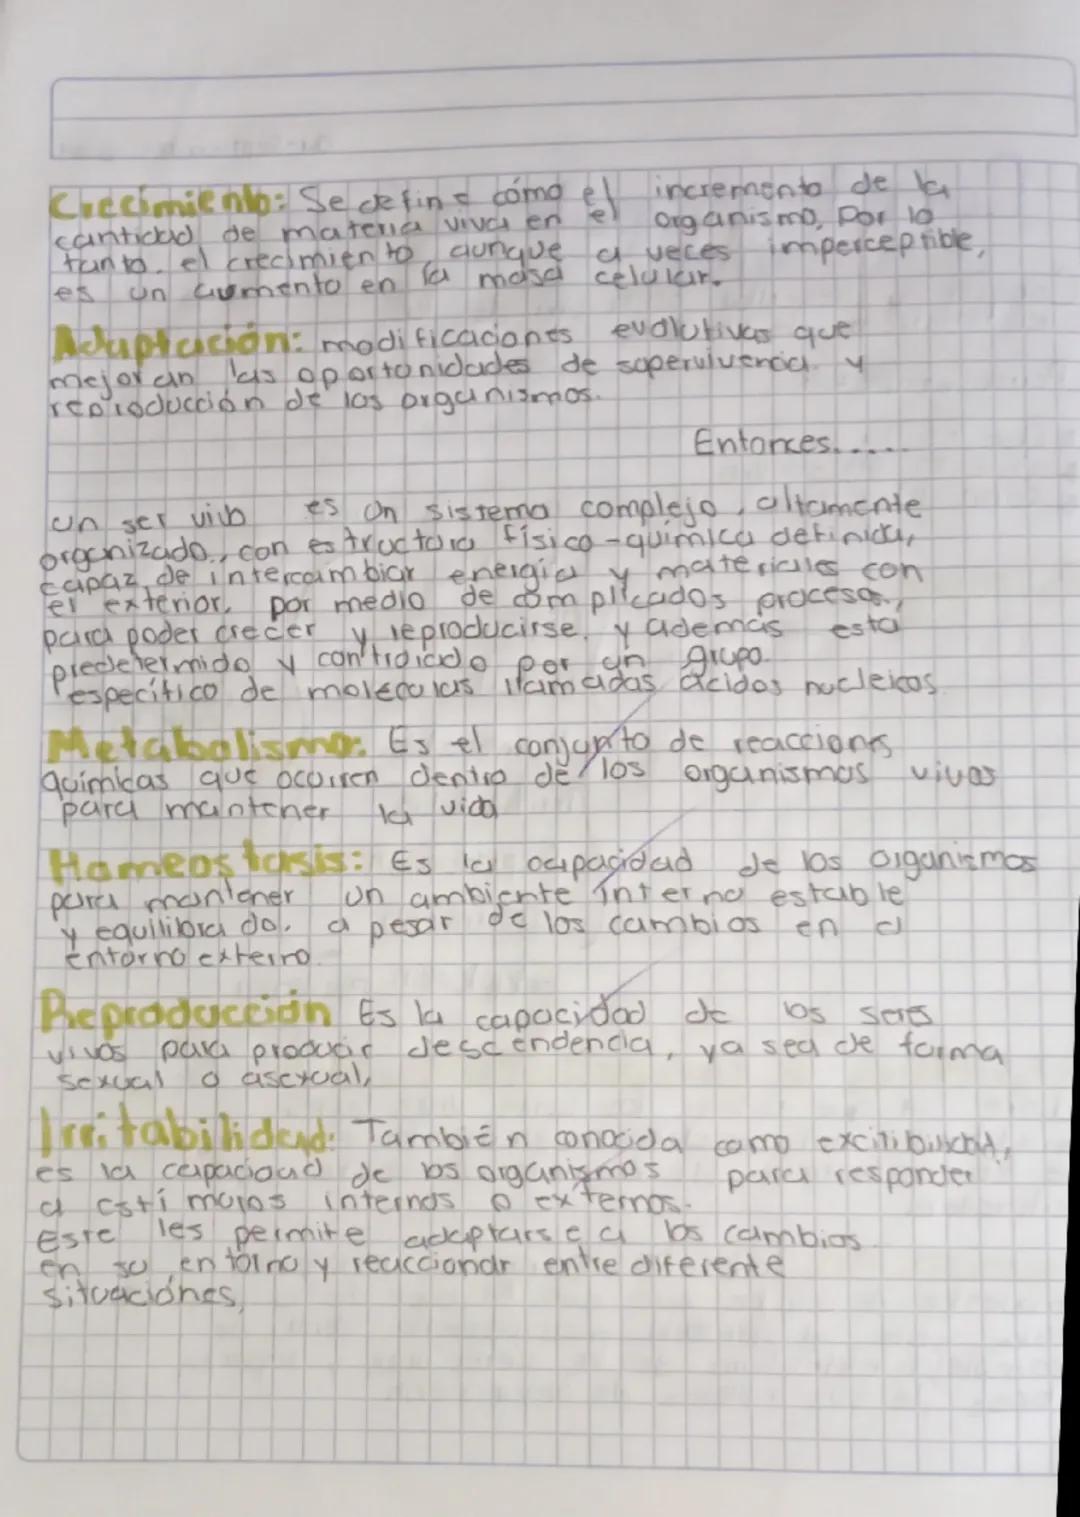 Crecimiento: Se define cómo el incremento de la
cantidad de materia viva en el organismo, Por lo
tanto, el crecimiento, aunque a veces imperceptible,
es un aumento en la masa celular.
Adaptación: modificaciones evolutivas que
mejoran las oportunidades de supervivencia y
reproducción de los organismos.
Entonces.....
un ser vivo es un sistema complejo, altamente
organizado, con estructura físico-química definida,
capaz de intercambiar energía y materiales con
el exterior, por medio de complicados procesos,
para poder crecer y reproducirse, y además esta
predetermido y controlado por un grupo
específico de moléculas llamadas ácidos nucleicos
Metabolismo: Es el conjunto de reacciones
químicas que ocurren dentro de los organismos vivos
para mantener la vida
Homeostasis: Es la capacidad de los organismos
para mantener un ambiente interno estable
y equilibrado, a pesar de los cambios en el
entorno externo.
Reproducción Es la capacidad de los seres
vivos para producir descendencia, ya sea de forma
sexual o asexual,
Irritabilidad: También conocida como
es la capacidad de los organismos para responder
a estímulos internos o externos.
Este les permite adaptarse a los cambios
en su entorno y reaccionar entre diferente
situaciónes,